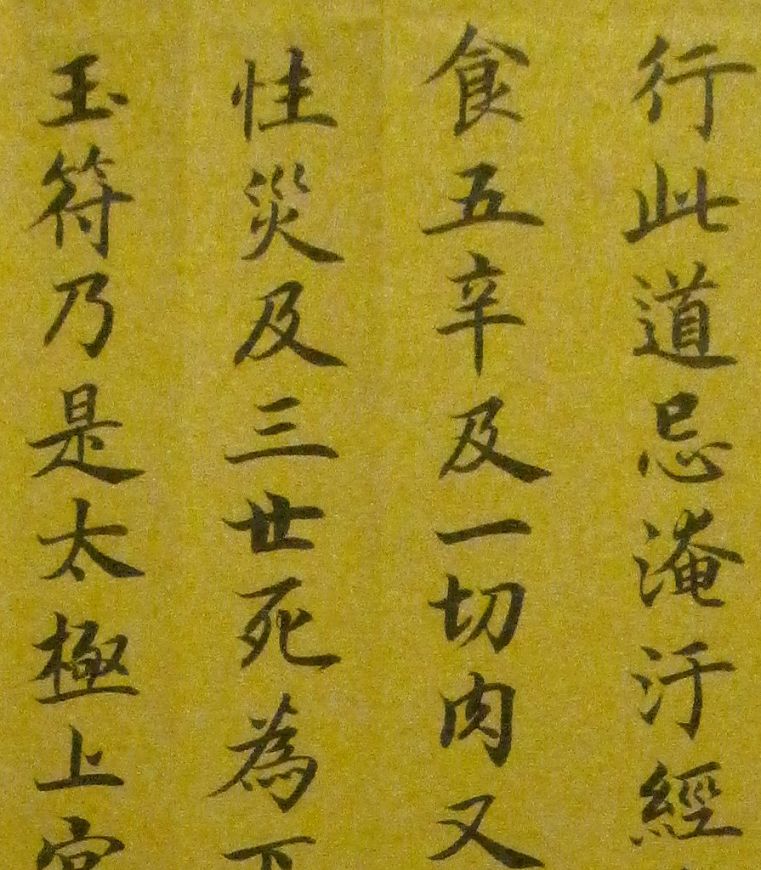 行此道忌淹汙經
食五辛及一切肉又
性災及三世死為下
玉符乃是太極上宮